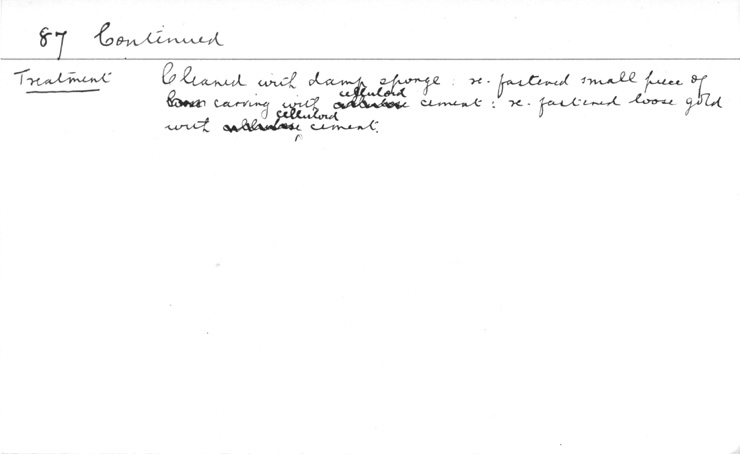 87 Continued
Treatment Cleaned with damp sponge : re-fastened small piece of
carving with celluloid cement : re-fastened loose gold
with celluloid cement.